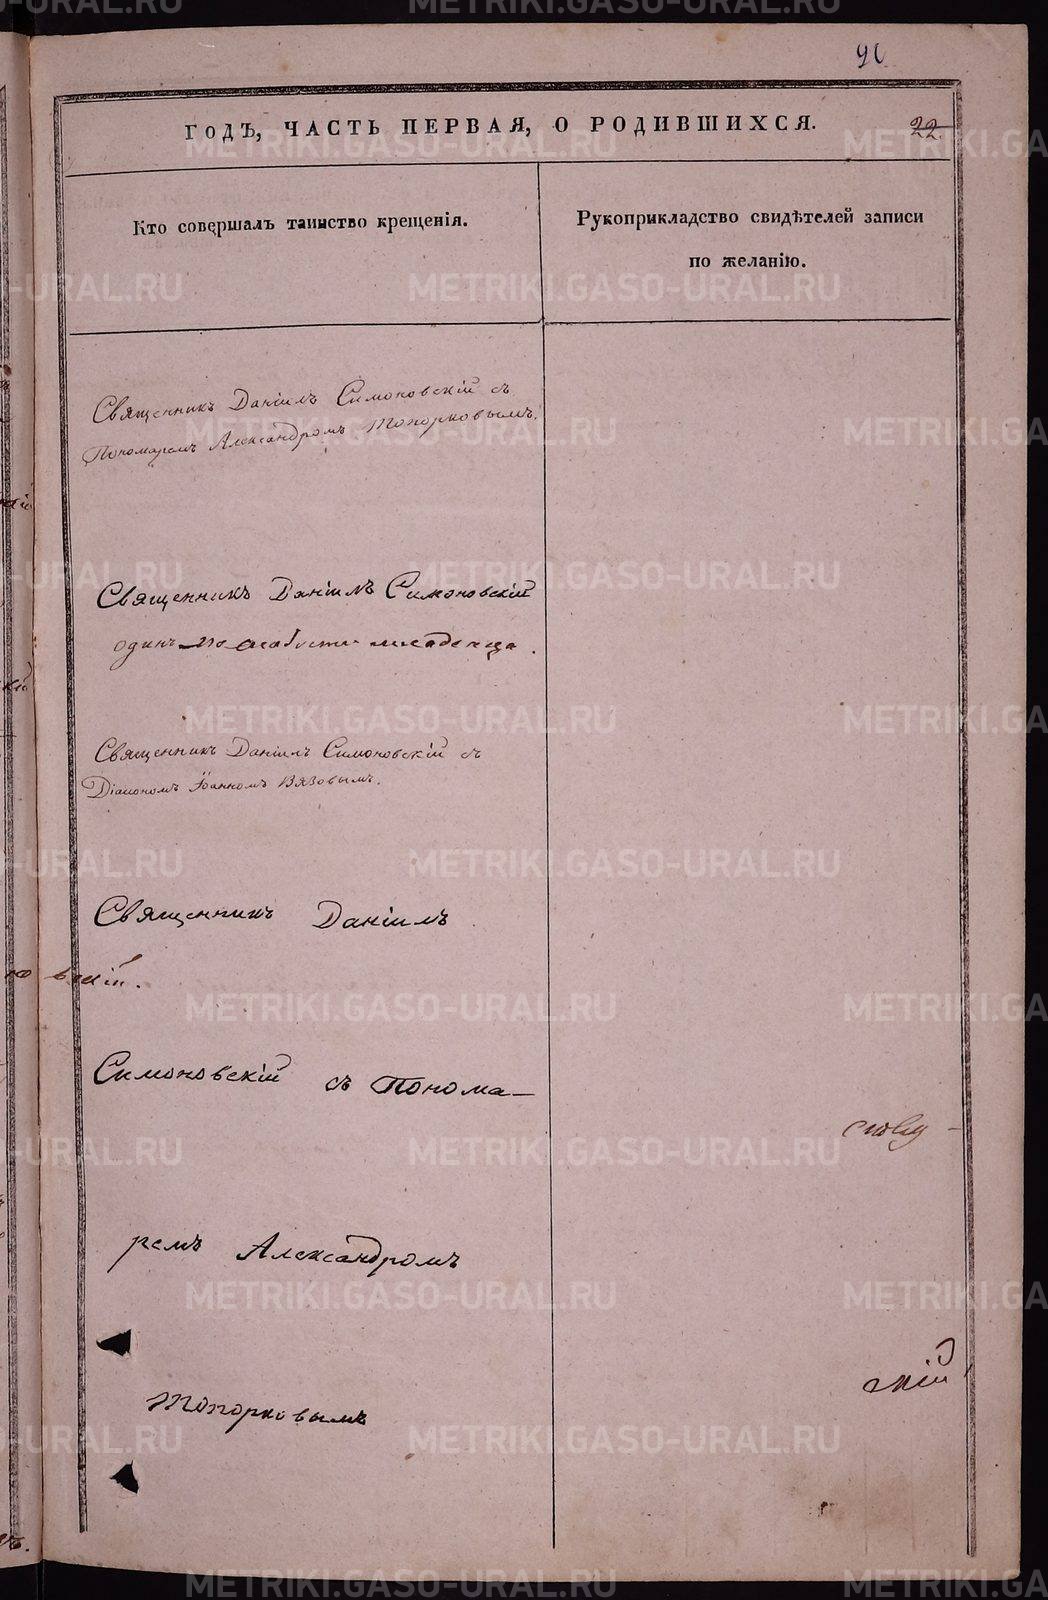 90
ГОДЪ, ЧАСТЬ ПЕРВАЯ, О РОДИВШИХСЯ.
22.
Кто совершалъ таинство крещенія.
Рукоприкладство свидѣтелей записи
по желанію.
Священникъ Даніилъ Симоновскій съ
Пономаремъ Александромъ Топорковымъ.
Священникъ Даніилъ Симоновскій
одинъ по слабости младенца.
Священникъ Даніилъ Симоновскій съ
Діакономъ Іоанномъ Вязовымъ.
Священникъ Даніилъ
вскій.
Симоновскій съ Понома-
ремъ Александромъ
скій
Топорковымъ
METRIKI.GASO-URAL.RU